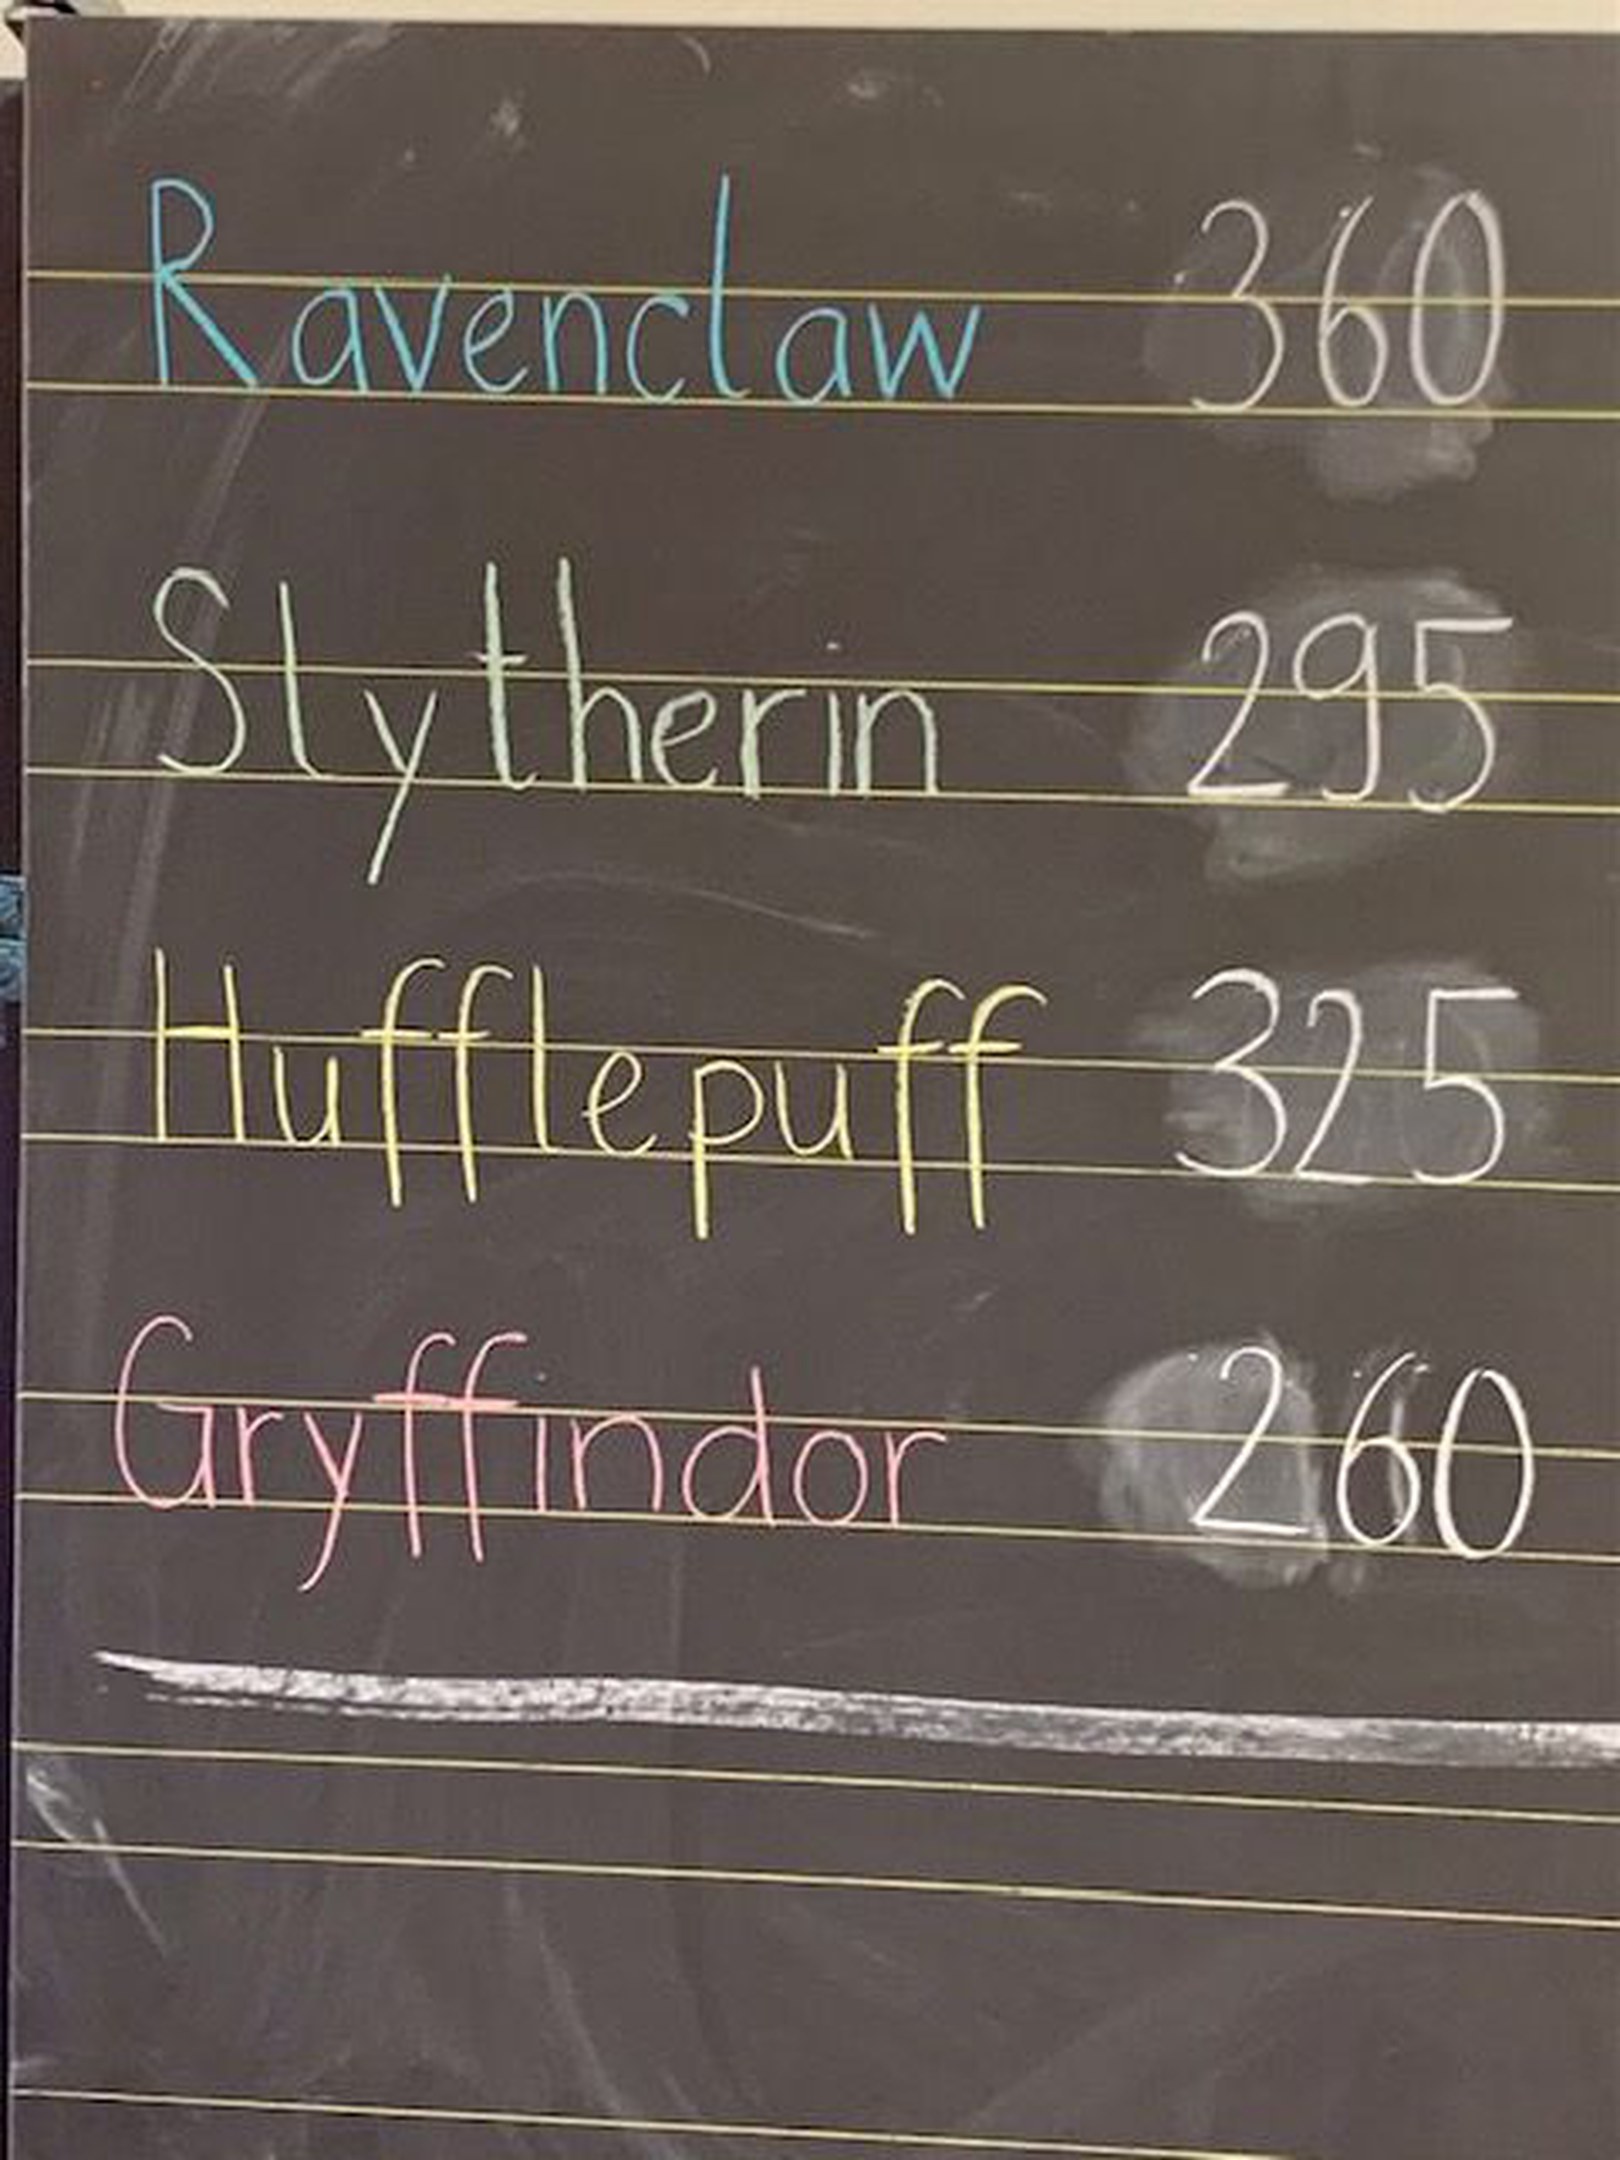 Ravenclaw 360
Slytherin 295
Hufflepuff 325
Gryffindor 260